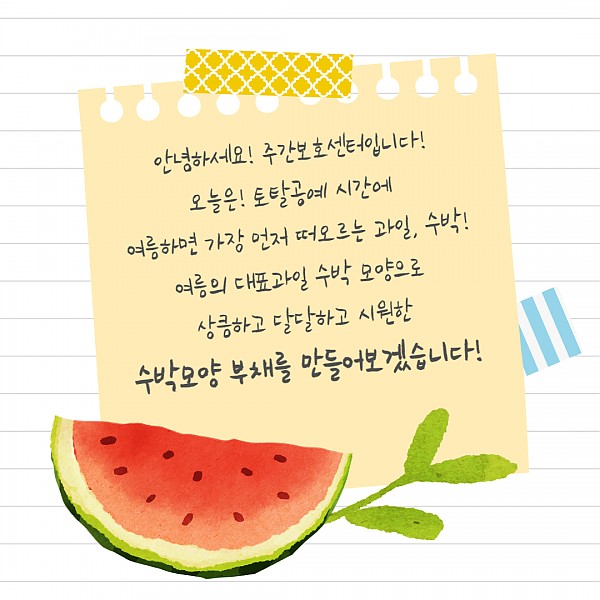 안녕하세요! 주간보호센터입니다!
오늘은! 토탈공예 시간에
여름하면 가장 먼저 떠오르는 과일, 수박!
여름의 대표과일 수박 모양으로
상큼하고 달달하고 시원한
수박모양 부채를 만들어보겠습니다!